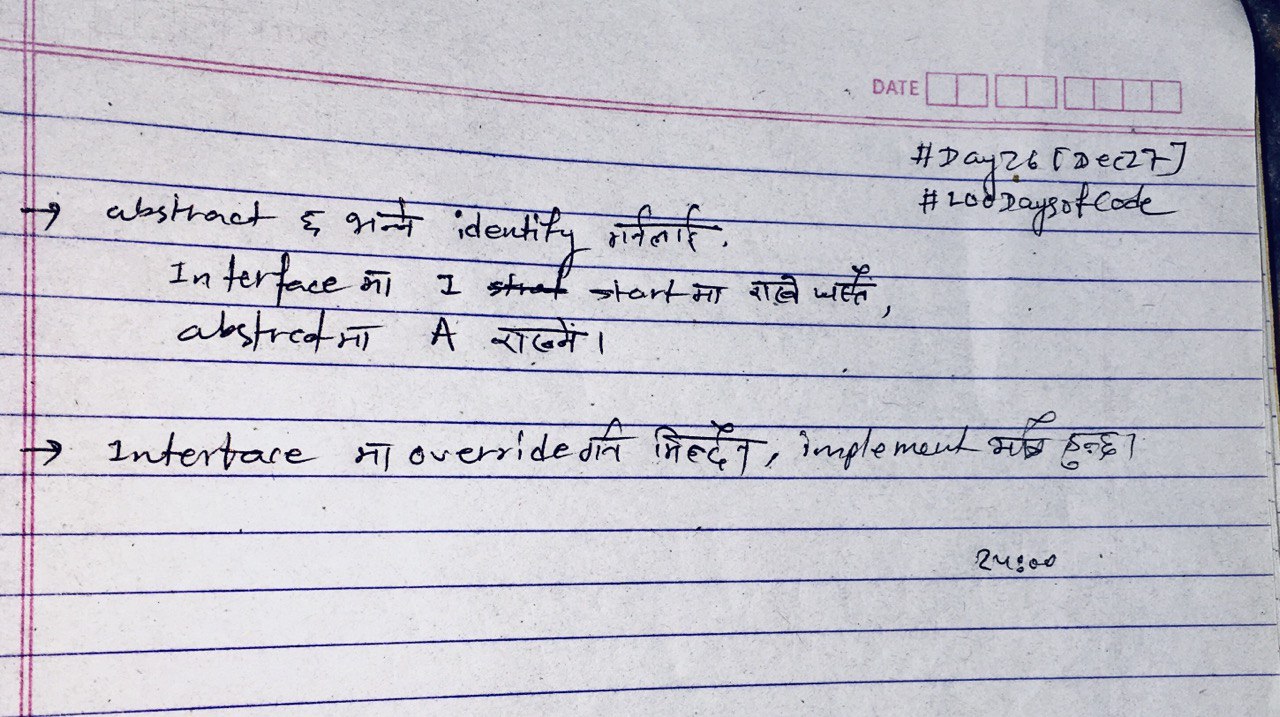 DATE
#Day26 [Dec27]
#100DaysofCode
→ abstract छ भन्ने identify गर्नलाई,
Interface मा I start मा राखे जस्तै,
abstractमा A राख्ने।
→ Interface मा override गर्न मिल्दैन, implement मात्रै हुन्छ।
24:00